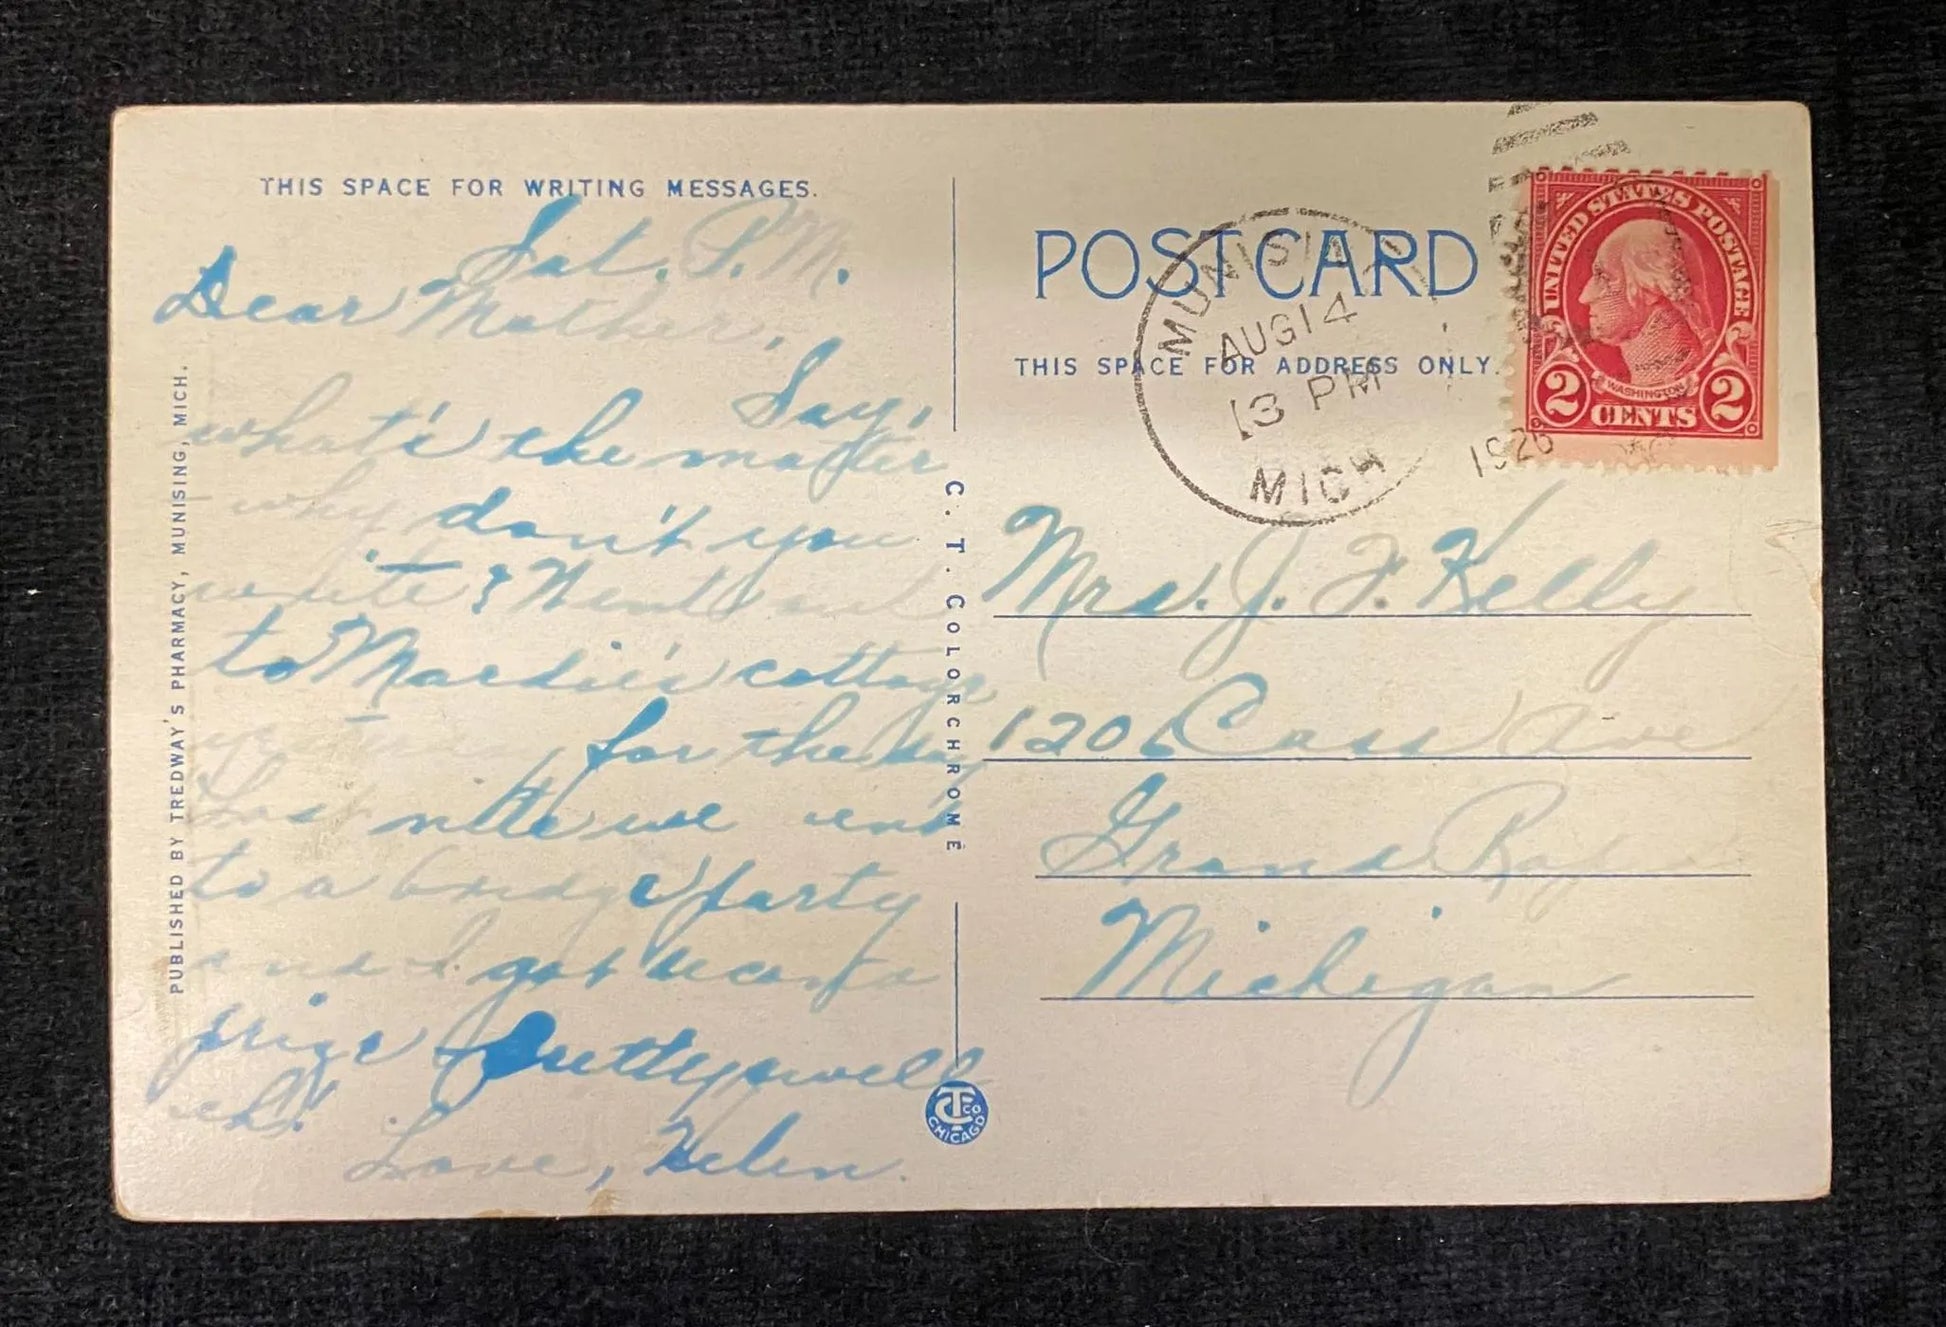 THIS SPACE FOR WRITING MESSAGES.
Sat. P.M.
Dear Mother,
Say,
what's the matter
why don't you
write? Went out
to Mardie's cottage
for the day
Last nite we went
to a bridge party
and I got second
prize Pretty swell
eh!
Love, Helen.
PUBLISHED BY TREDWAY'S PHARMACY, MUNISING, MICH.
C. T. COLORCHROME
CT CO
CHICAGO
POST CARD
THIS SPACE FOR ADDRESS ONLY.
MUNISING
AUG 14
13 PM
MICH
1926
UNITED STATES POSTAGE
WASHINGTON
2 CENTS 2
Mrs. J. F. Kelly
120 Cass Ave
Grand Rapids
Michigan